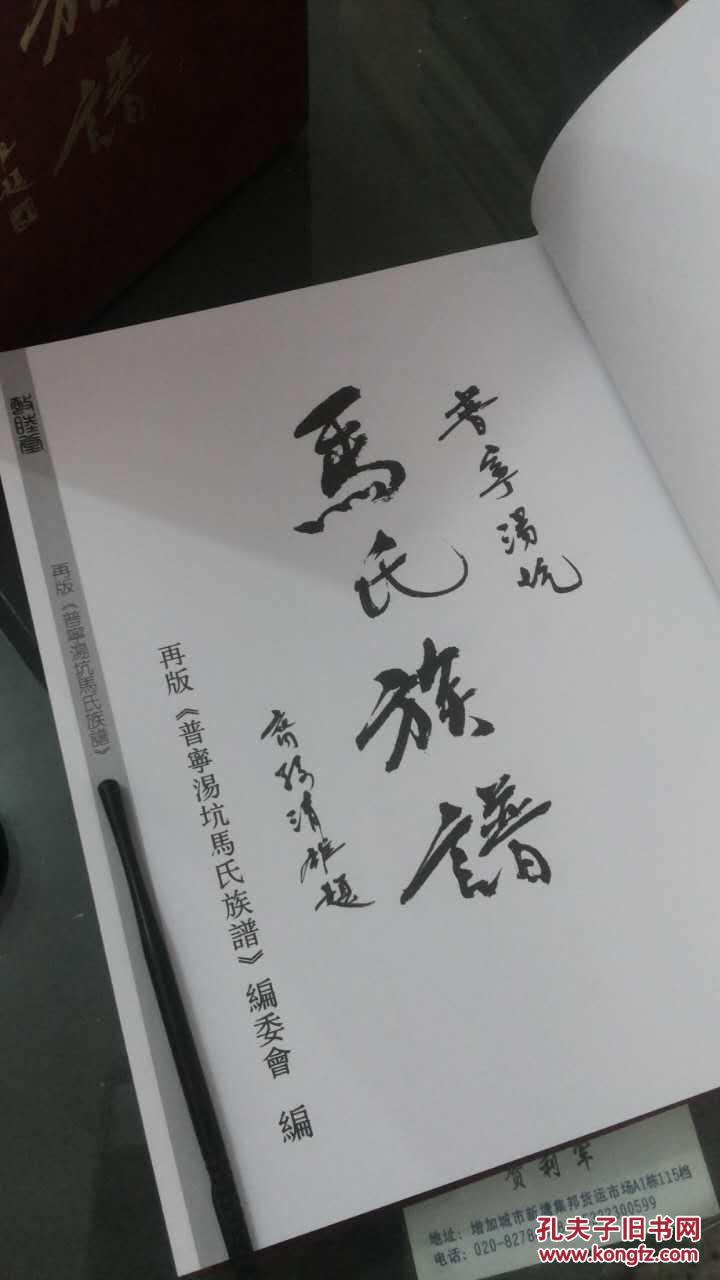 族譜
題
普寧湯坑
馬氏族譜
裔孫清雄題
再版《普寧湯坑馬氏族譜》編委會 編
敦睦堂
再版《普寧湯坑馬氏族譜》
贺利军
地址：增加城市新塘集邦货运市场A1栋115档
电话：020-8278
2300599
孔夫子旧书网
www.kongfz.com